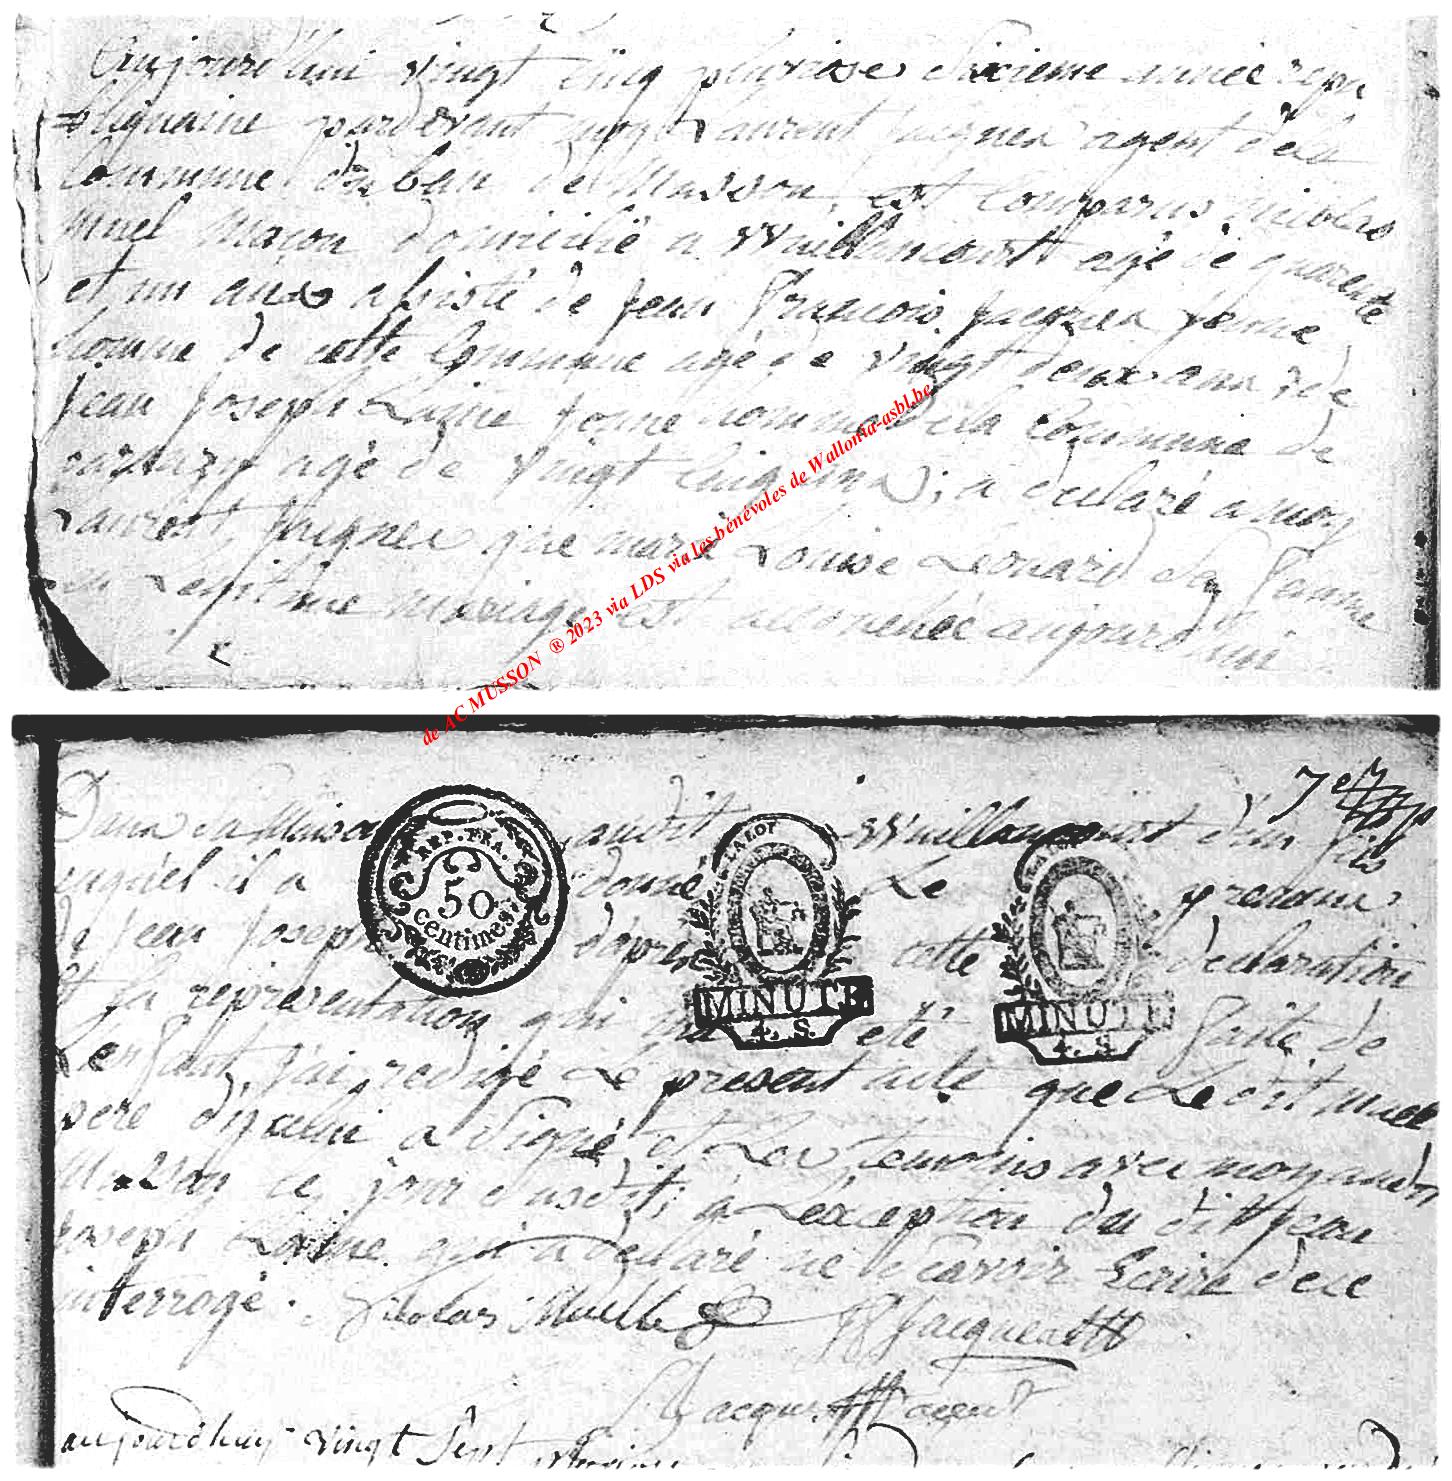 Aujourd'hui vingt cinq pluviose Sixieme année repu
=bliquaine pardevant moy Laurent Jacques agent de la
Commune du ban de Musson, est comparus nicolas
muel maçon domicilié a Wuillancourt agé de quarente
et un ans assisté de Jean François Jacques jeune
homme de cette Commune agé de vingt deux ans, et de
Jean Joseph Laine jeune homme de la Commune de
agé de vingt cinq ans; a déclaré a moy
Laurent Jacques que marie Louise Léonard Sa famme
en Legitime mariage est accouchée aujourd'hui
de AC MUSSON ® 2023 via LDS via les bénévoles de Wallonia-asbl.be
7e
Dans sa Maison audit Wuillancourt d'un fils
auquel il a donné Le prenom
de Jean Joseph d'après cette déclaration
et la representation qui m'a eté faite de
L'enfant, j'ai redigé Le present acte que Ledit muel
pere d'iceluy a Signé et Les temoins avec moy au dit
Musson ce jour susdit; à L'exception du dit Jean
Joseph Laine qui a déclaré ne Savoir Ecrire de ce
interrogé. Nicolas Muelle JF Jacques
L Jacques agent
REP. FRA.
50
centimes.
LA LOI
MINUTE
4. S.
MINUTE
4. S.
aujourdhuy vingt Sept